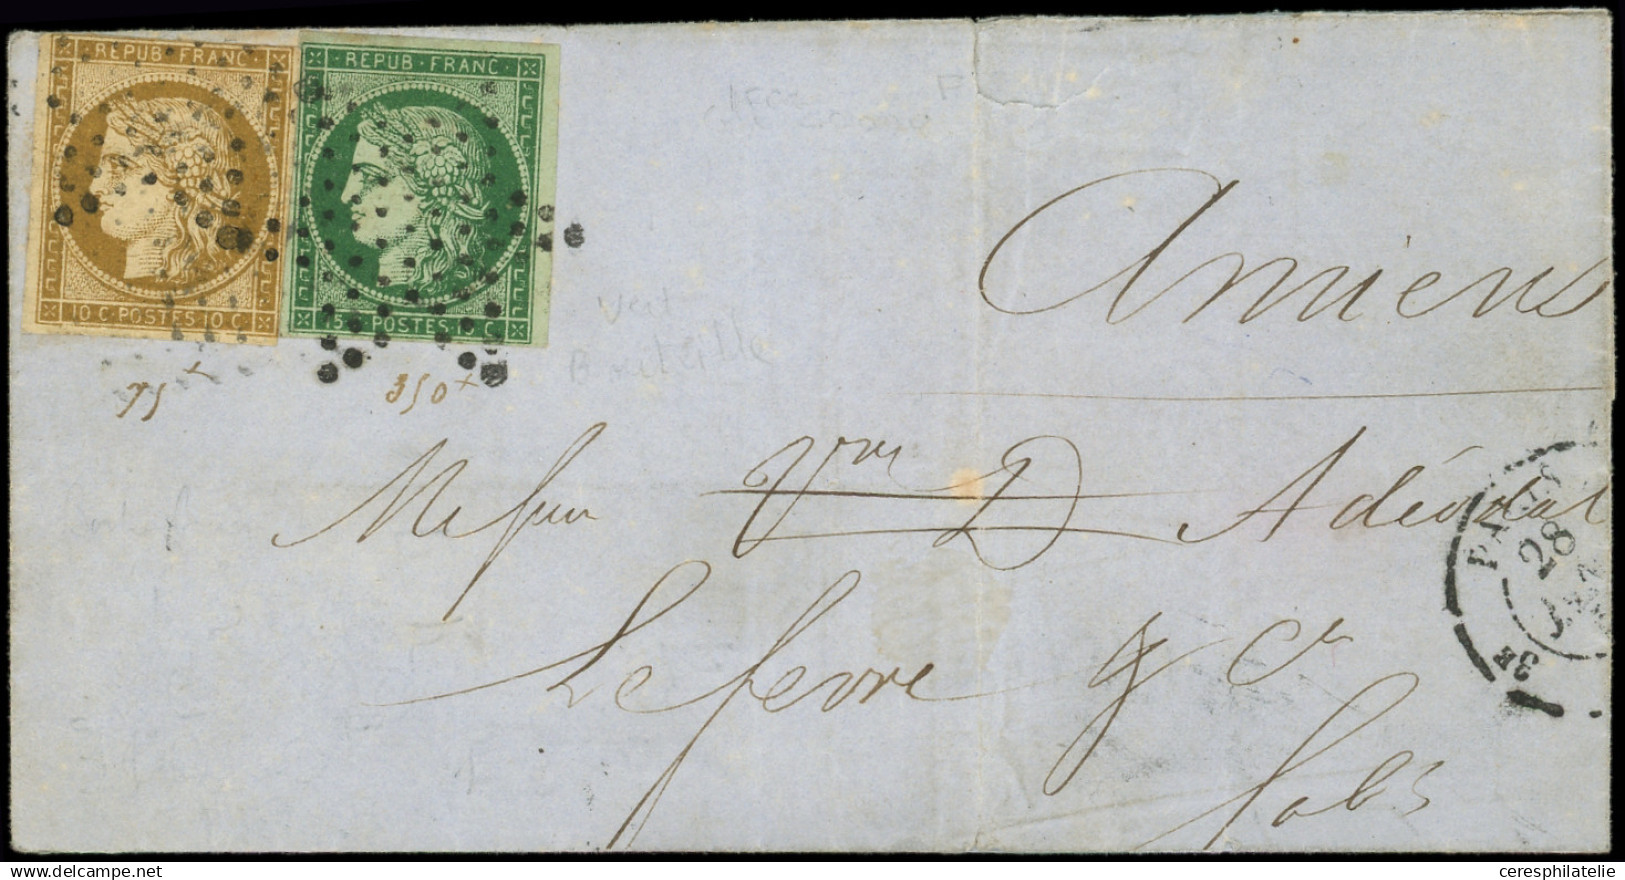 REPUB·FRANC·
10 C·POSTES·10 C·
REPUB·FRANC·
15 C·POSTES·15 C·
75 x
350 x
Vert
Bouteille
Amiens
Vve D
Lefevre & Cie
PARIS
28
3E
ceresphilatelie.com